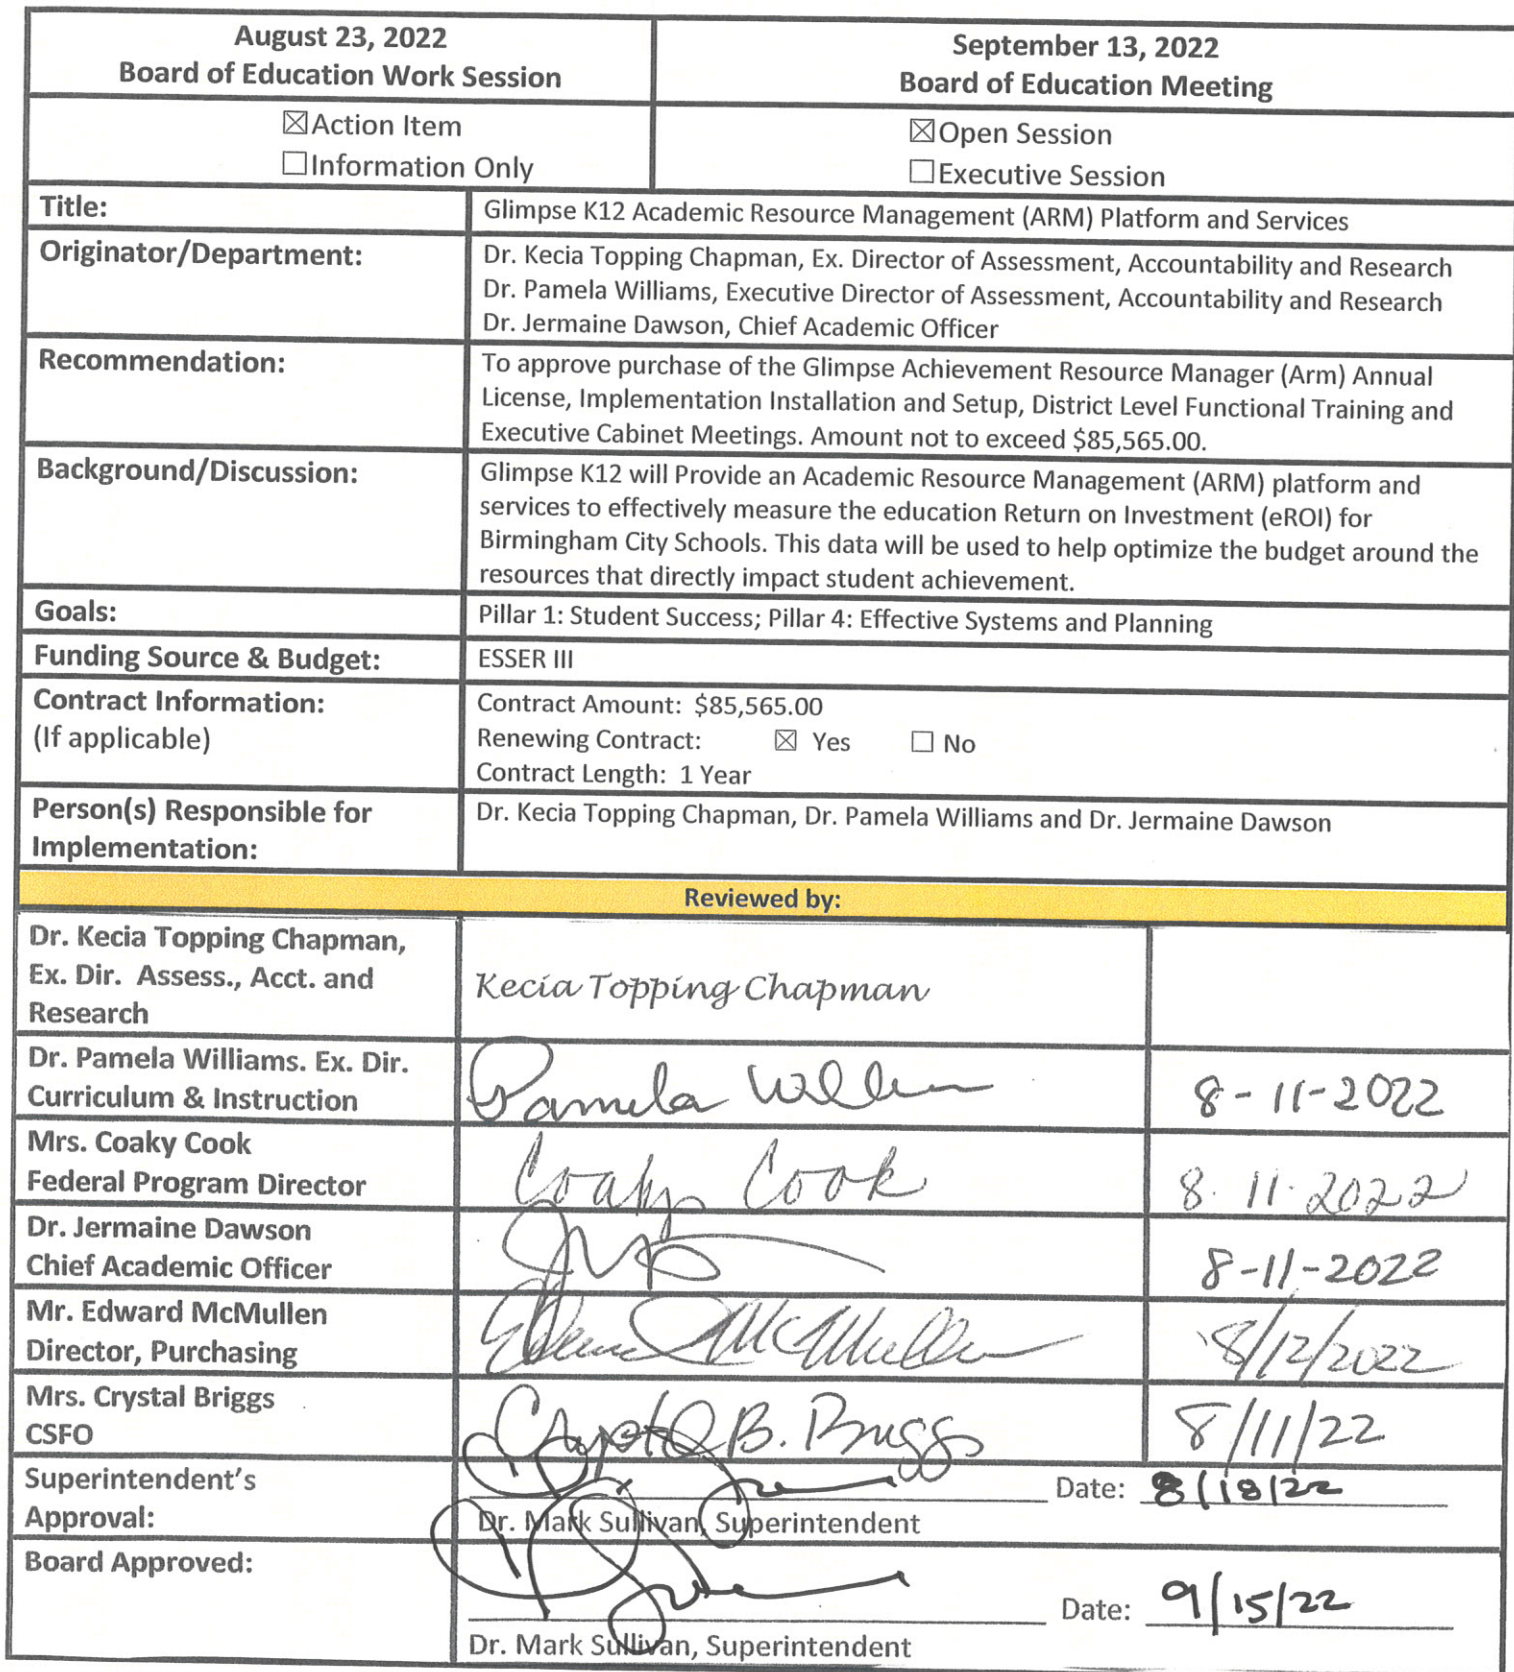 August 23, 2022
Board of Education Work Session
September 13, 2022
Board of Education Meeting
☒Action Item
☐Information Only
☒Open Session
☐Executive Session
Title:
Glimpse K12 Academic Resource Management (ARM) Platform and Services
Originator/Department:
Dr. Kecia Topping Chapman, Ex. Director of Assessment, Accountability and Research
Dr. Pamela Williams, Executive Director of Assessment, Accountability and Research
Dr. Jermaine Dawson, Chief Academic Officer
Recommendation:
To approve purchase of the Glimpse Achievement Resource Manager (Arm) Annual
License, Implementation Installation and Setup, District Level Functional Training and
Executive Cabinet Meetings. Amount not to exceed $85,565.00.
Background/Discussion:
Glimpse K12 will Provide an Academic Resource Management (ARM) platform and
services to effectively measure the education Return on Investment (eROI) for
Birmingham City Schools. This data will be used to help optimize the budget around the
resources that directly impact student achievement.
Goals:
Pillar 1: Student Success; Pillar 4: Effective Systems and Planning
Funding Source & Budget:
ESSER III
Contract Information:
(If applicable)
Contract Amount: $85,565.00
Renewing Contract: ☒ Yes ☐ No
Contract Length: 1 Year
Person(s) Responsible for
Implementation:
Dr. Kecia Topping Chapman, Dr. Pamela Williams and Dr. Jermaine Dawson
Reviewed by:
Dr. Kecia Topping Chapman,
Ex. Dir. Assess., Acct. and
Research
Kecia Topping Chapman
Dr. Pamela Williams. Ex. Dir.
Curriculum & Instruction
Pamela Williams
8-11-2022
Mrs. Coaky Cook
Federal Program Director
Coaky Cook
8.11.2022
Dr. Jermaine Dawson
Chief Academic Officer
8-11-2022
Mr. Edward McMullen
Director, Purchasing
Edward McMullen
8/12/2022
Mrs. Crystal Briggs
CSFO
Crystal B. Briggs
8/11/22
Superintendent's
Approval:
Date: 8/18/22
Dr. Mark Sullivan, Superintendent
Board Approved:
Date: 9/15/22
Dr. Mark Sullivan, Superintendent